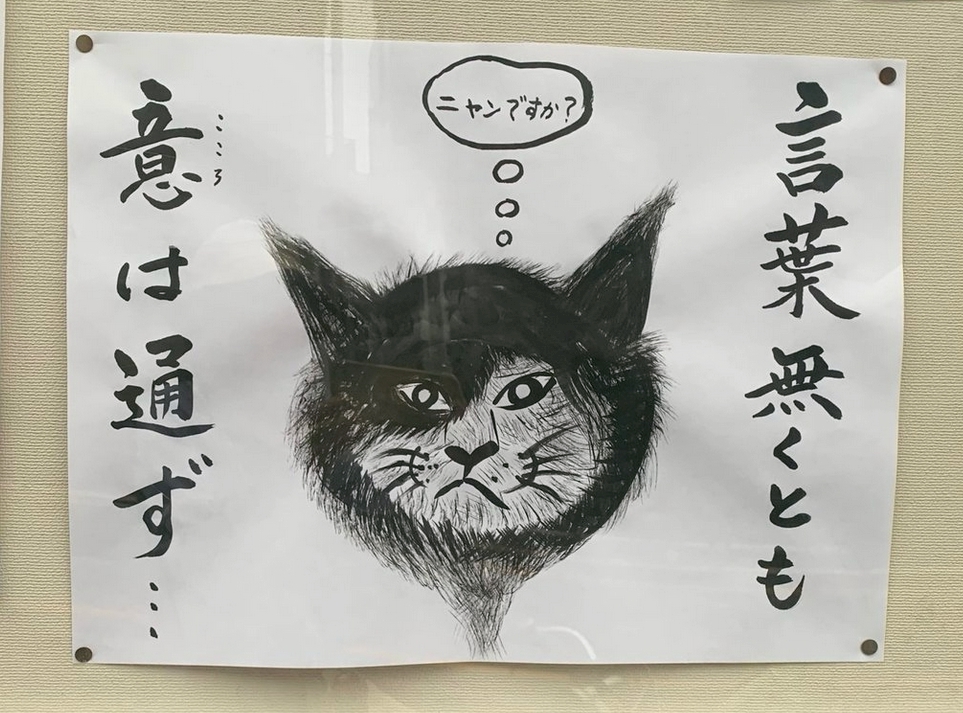 言葉無くとも
ニャンですか?
こころ
意は通ず…